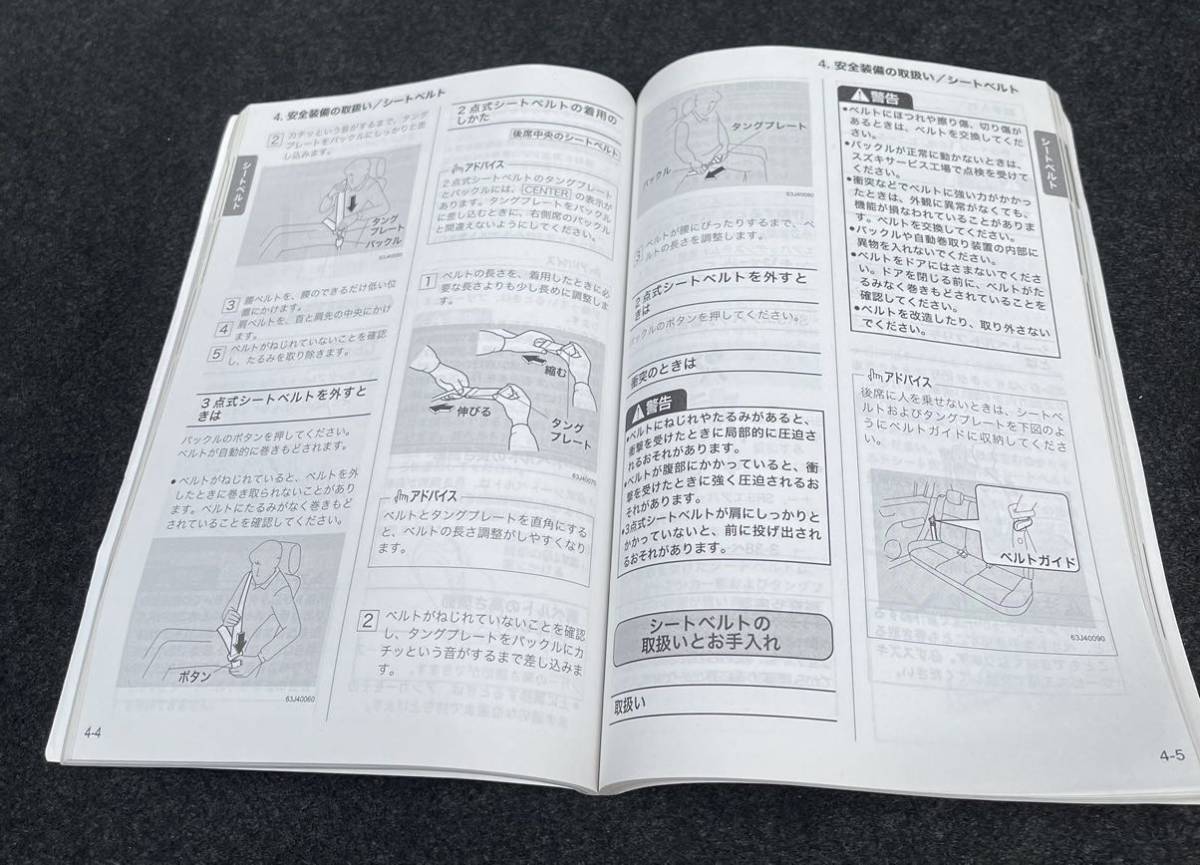 4. 安全装備の取扱い／シートベルト
シートベルト
2 カチッという音がするまで、タング
プレートをバックルにしっかりと差
し込みます。
タング
プレート
バックル
63J40050
3 腰ベルトを、腰のできるだけ低い位
置にかけます。
4 肩ベルトを、首と肩先の中央にかけ
ます。
5 ベルトがねじれていないことを確認
し、たるみを取り除きます。
3点式シートベルトを外すと
きは
バックルのボタンを押してください。
ベルトが自動的に巻きもどされます。
●ベルトがねじれていると、ベルトを外
したときに巻き取られないことがあり
ます。ベルトにたるみがなく巻きもど
されていることを確認してください。
ボタン
63J40060
4-4
2点式シートベルトの着用の
しかた
後席中央のシートベルト
アドバイス
2点式シートベルトのタングプレート
とバックルには、CENTER の表示が
あります。タングプレートをバックル
に差し込むときに、右側席のバックル
と間違えないようにしてください。
1 ベルトの長さを、着用したときに必
要な長さよりも少し長めに調整しま
す。
縮む
伸びる
タング
プレート
63J40070
アドバイス
ベルトとタングプレートを直角にする
と、ベルトの長さ調整がしやすくなり
ます。
2 ベルトがねじれていないことを確認
し、タングプレートをバックルにカ
チッという音がするまで差し込みま
す。
4. 安全装備の取扱い／シートベルト
シートベルト
タングプレート
バックル
63J40080
3 ベルトが腰にぴったりするまで、ベ
ルトの長さを調整します。
2点式シートベルトを外すと
きは
バックルのボタンを押してください。
衝突のときは
警告
●ベルトにねじれやたるみがあると、
衝撃を受けたときに局部的に圧迫さ
れるおそれがあります。
●ベルトが腹部にかかっていると、衝
撃を受けたときに強く圧迫されるお
それがあります。
●3点式シートベルトが肩にしっかりと
かかっていないと、前に投げ出され
るおそれがあります。
シートベルトの
取扱いとお手入れ
取扱い
警告
●ベルトにほつれや擦り傷、切り傷が
あるときは、ベルトを交換してくだ
さい。
●バックルが正常に動かないときは、
スズキサービス工場で点検を受けて
ください。
●衝突などでベルトに強い力がかかっ
たときは、外観に異常がなくても、
機能が損なわれていることがありま
す。ベルトを交換してください。
●バックルや自動巻取り装置の内部に
異物を入れないでください。
●ベルトをドアにはさまないでくださ
い。ドアを閉じる前に、ベルトがた
るみなく巻きもどされていることを
確認してください。
●ベルトを改造したり、取り外さない
でください。
アドバイス
後席に人を乗せないときは、シートベ
ルトおよびタングプレートを下図のよ
うにベルトガイドに収納してくださ
い。
ベルトガイド
63J40090
4-5